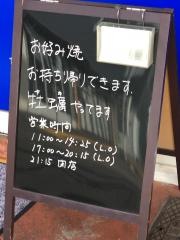 お好み焼
お持ち帰りできます
牡蠣やってます
営業時間
11:00～14:25(L.O)
17:00～20:15(L.O)
21:15 閉店